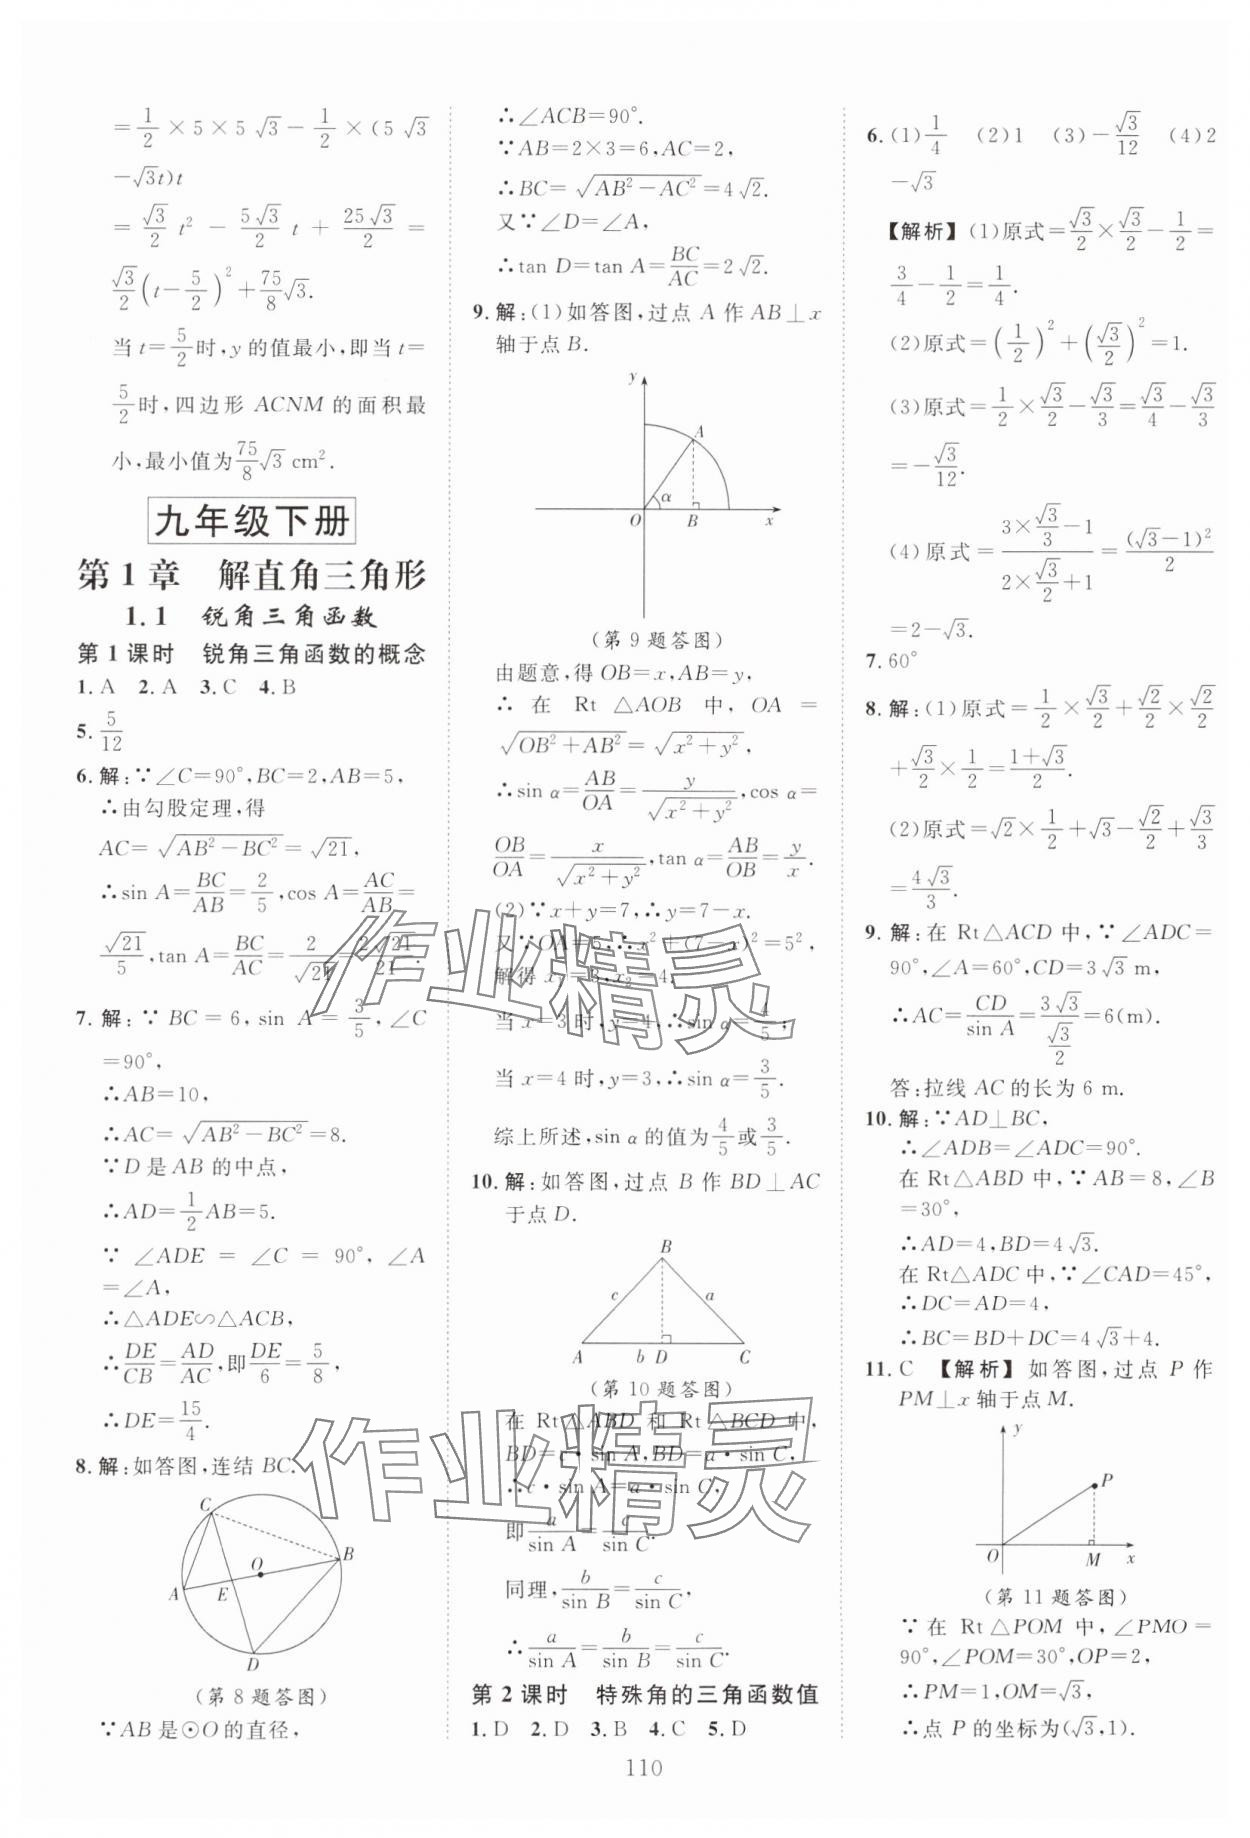 =1/2×5×5√3-1/2×(5√3
-√3t)t
=√3/2 t²-5√3/2 t+25√3/2=
√3/2(t-5/2)²+75/8√3.
当t=5/2时,y的值最小,即当t=
5/2时,四边形ACNM的面积最
小,最小值为75/8√3 cm².
九年级下册
第1章 解直角三角形
1.1 锐角三角函数
第1课时 锐角三角函数的概念
1.A 2.A 3.C 4.B
5.5/12
6.解:∵∠C=90°,BC=2,AB=5,
∴由勾股定理,得
AC=√(AB²-BC²)=√21,
∴sin A=BC/AB=2/5,cos A=AC/AB=
√21/5,tan A=BC/AC=2/√21=2√21/21.
7.解:∵BC=6,sin A=3/5,∠C
=90°,
∴AB=10,
∴AC=√(AB²-BC²)=8.
∵D是AB的中点,
∴AD=1/2AB=5.
∵∠ADE=∠C=90°,∠A
=∠A,
∴△ADE∽△ACB,
∴DE/CB=AD/AC,即DE/6=5/8,
∴DE=15/4.
8.解:如答图,连结BC.
C
O
B
A
E
D
(第8题答图)
∵AB是⊙O的直径,
∴∠ACB=90°.
∵AB=2×3=6,AC=2,
∴BC=√(AB²-AC²)=4√2.
又∵∠D=∠A,
∴tan D=tan A=BC/AC=2√2.
9.解:(1)如答图,过点A作AB⊥x
轴于点B.
y
A
α
O B x
(第9题答图)
由题意,得OB=x,AB=y,
∴在Rt△AOB中,OA=
√(OB²+AB²)=√(x²+y²),
∴sin α=AB/OA=y/√(x²+y²),cos α=
OB/OA=x/√(x²+y²),tan α=AB/OB=y/x.
(2)∵x+y=7,∴y=7-x.
又∵OA=5,∴x²+(7-x)²=5²,
解得x₁=3,x₂=4,
当x=3时,y=4,∴sin α=4/5;
当x=4时,y=3,∴sin α=3/5.
综上所述,sin α的值为4/5或3/5.
10.解:如答图,过点B作BD⊥AC
于点D.
B
c a
A b D C
(第10题答图)
在Rt△ABD和Rt△BCD中,
BD=c·sin A,BD=a·sin C,
∴c·sin A=a·sin C,
即a/sin A=c/sin C.
同理,b/sin B=c/sin C,
∴a/sin A=b/sin B=c/sin C.
第2课时 特殊角的三角函数值
1.D 2.D 3.B 4.C 5.D
6.(1)1/4 (2)1 (3)-√3/12 (4)2
-√3
【解析】(1)原式=√3/2×√3/2-1/2=
3/4-1/2=1/4.
(2)原式=(1/2)²+(√3/2)²=1.
(3)原式=1/2×√3/2-√3/3=√3/4-√3/3
=-√3/12.
(4)原式=(3×√3/3-1)/(2×√3/2+1)=(√3-1)²/2
=2-√3.
7.60°
8.解:(1)原式=1/2×√3/2+√2/2×√2/2
+√3/2×1/2=(1+√3)/2.
(2)原式=√2×1/2+√3-√2/2+√3/3
=4√3/3.
9.解:在Rt△ACD中,∵∠ADC=
90°,∠A=60°,CD=3√3 m,
∴AC=CD/sin A=3√3/(√3/2)=6(m).
答:拉线AC的长为6 m.
10.解:∵AD⊥BC,
∴∠ADB=∠ADC=90°.
在Rt△ABD中,∵AB=8,∠B
=30°,
∴AD=4,BD=4√3.
在Rt△ADC中,∵∠CAD=45°,
∴DC=AD=4,
∴BC=BD+DC=4√3+4.
11.C 【解析】如答图,过点P作
PM⊥x轴于点M.
y
P
O M x
(第11题答图)
∵在Rt△POM中,∠PMO=
90°,∠POM=30°,OP=2,
∴PM=1,OM=√3,
∴点P的坐标为(√3,1).
110
作业精灵
作业精灵